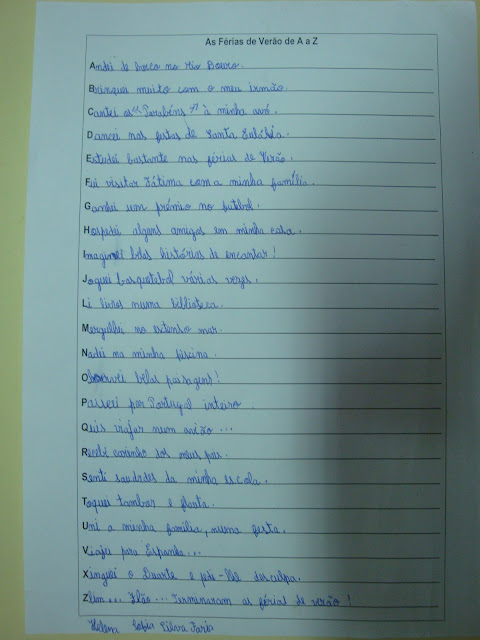 As Férias de Verão de A a Z
Andei de barco no Rio Douro.
Brinquei muito com o meu irmão.
Cantei os "Parabéns" à minha avó.
Dancei nas festas de Santa Eulália.
Estudei bastante nas férias de Verão.
Fui visitar Fátima com a minha família.
Ganhei um prémio no futebol.
Hospedei alguns amigos em minha casa.
Imaginei belas histórias de encantar!
Joguei basquetebol várias vezes.
Li livros numa biblioteca.
Mergulhei no extenso mar.
Nadei na minha piscina.
Observei belas paisagens!
Passeei por Portugal inteiro.
Quis viajar num avião...
Recebi carinho dos meus pais.
Senti saudades da minha escola.
Toquei tambor e flauta.
Uni a minha família, numa festa.
Viajei para Espanha...
Xinguei o Duarte e pedi-lhe desculpa.
Zlim... Zlão... Terminaram as férias de verão!
Helena Sofia Silva Faria